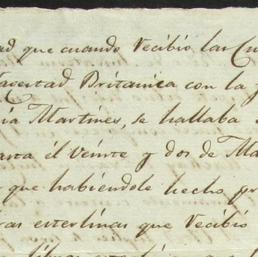 ad que cuando recibió las Cu
Magestad Britanica con la f
ia Martines, se hallaba
arta el veinte y dos de Ma
que habiendole hecho pr
ras esterlinas que recibió